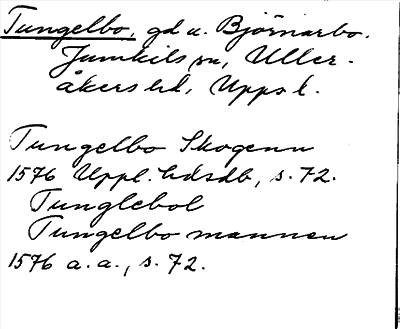 Tungelbo, gd u. Björnarbo.
Jumkils sn, Uller-
åkers hd, Upps l.
Tungelbo Skogenn
1576 Uppl. hdsdb, s. 72.
Tunglebol
Tungelbo mannen
1576 a.a., s. 72.